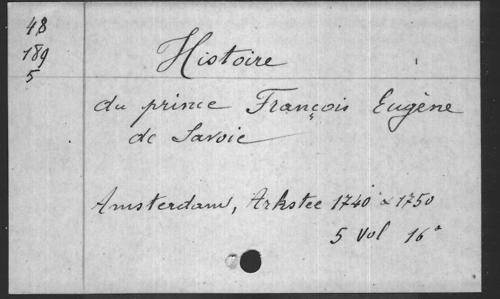 48
189
5
Histoire
du prince François Eugène
de Savoie
Amsterdam, Arkstee 1740 à 1750
5 Vol 16°